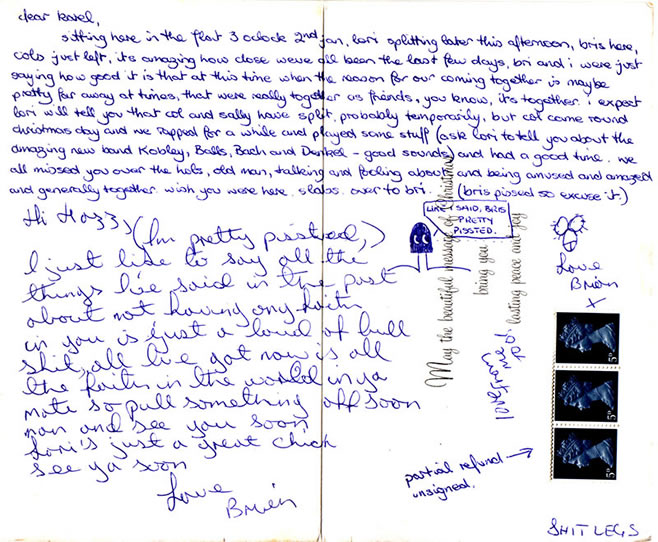 dear karel,
sitting here in the flat 3 oclock 2nd jan, lori splitting later this afternoon, bris here,
cols just left, its amazing how close weve all been the last few days, bri and i were just
saying how good it is that at this time when the reason for our coming together is maybe
pretty far away at times, that were really together as friends, you know, its together. i expect
lori will tell you that col and sally have split, probably temporarily, but col came round
christmas day and we rapped for a while and played some stuff (ask lori to tell you about the
amazing new band Kobley, Balls, Bach and Denkel - good sounds) and had a good time. we
all missed you over the hols, old man, talking and fooling about and being amused and amazed
and generally together. wish you were here. slabs. over to bri. (bris pissed so excuse it.)
Hi Hazzy
(I'm pretty pissted,)
I just like to say all the
things I've said in the past
about not having any faith
in you is just a load of bull
shit, all I've got now is all
the faith in the world in ya
mate so pull something off soon
man and see you soon
Lori's just a great chick
see ya soon
Love
Brien
LIKE I SAID, BRIS
PRETTY
PISSTED.
May the beautiful message of Christmas
bring you
lasting peace and joy
Love
Brien
x
5P
5P
5P
partial refund
unsigned.
SHIT LEGS